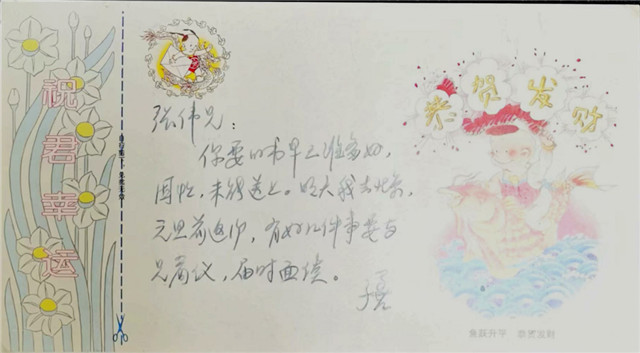 祝君幸运
恭贺发财
张伟兄:
你要的书早已准备好,
因忙,未能送上。明天我去北京,
元旦前返你,有好几件事要与
兄商议,届时面偿。
鱼跃升平 恭贺发财